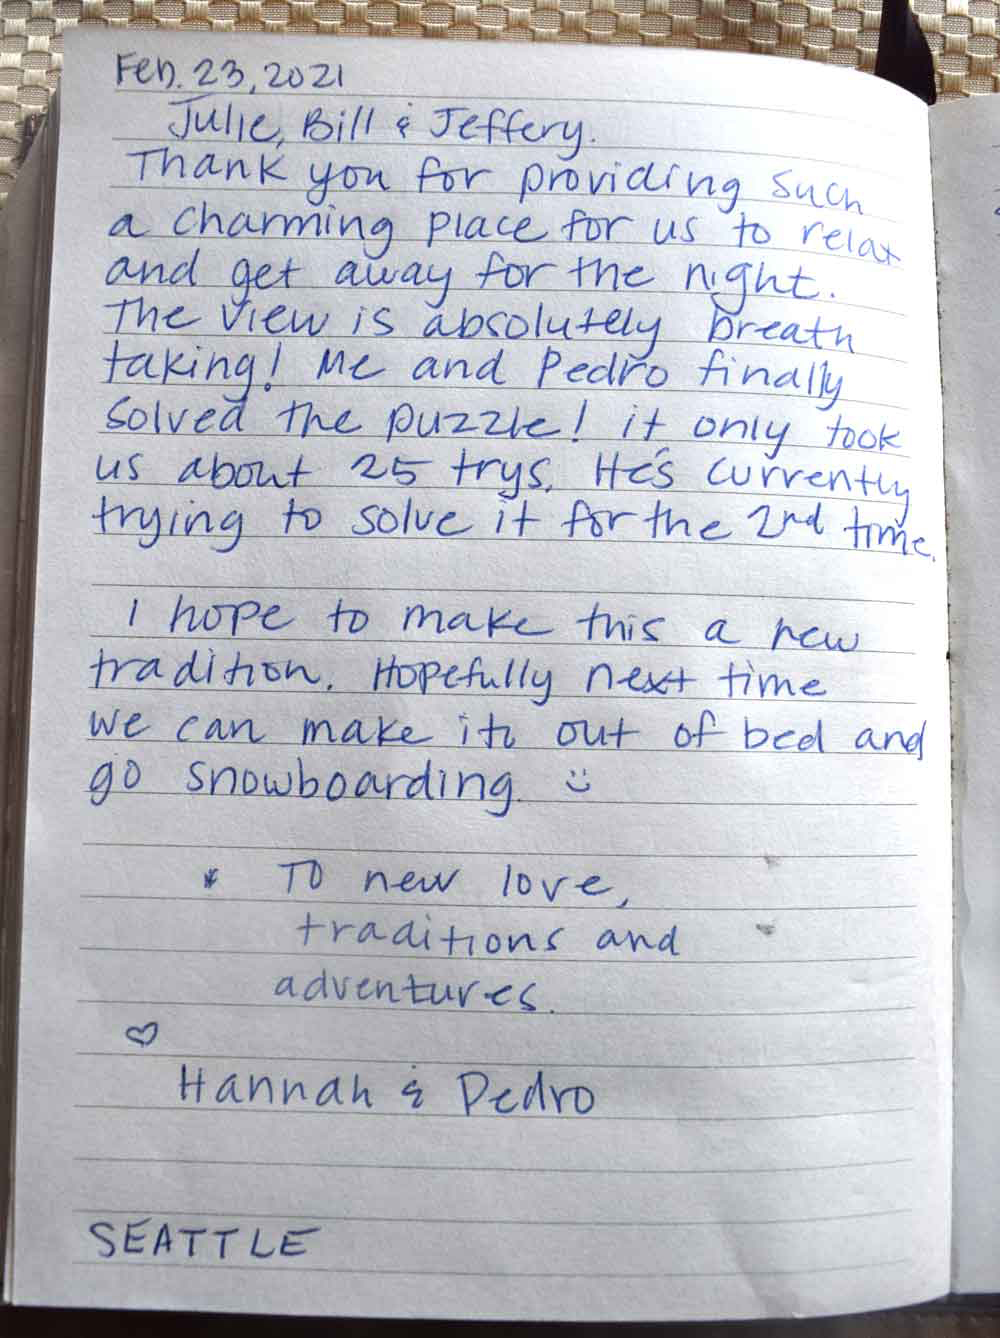 Feb. 23, 2021
Julie, Bill & Jeffery.
Thank you for providing such
a charming place for us to relax
and get away for the night.
The view is absolutely breath
taking! Me and Pedro finally
solved the puzzle! it only took
us about 25 trys. He's currently
trying to solve it for the 2nd time.
I hope to make this a new
tradition. Hopefully next time
we can make it out of bed and
go snowboarding. :)
* To new love,
traditions and
adventures.
♡
Hannah & Pedro
SEATTLE